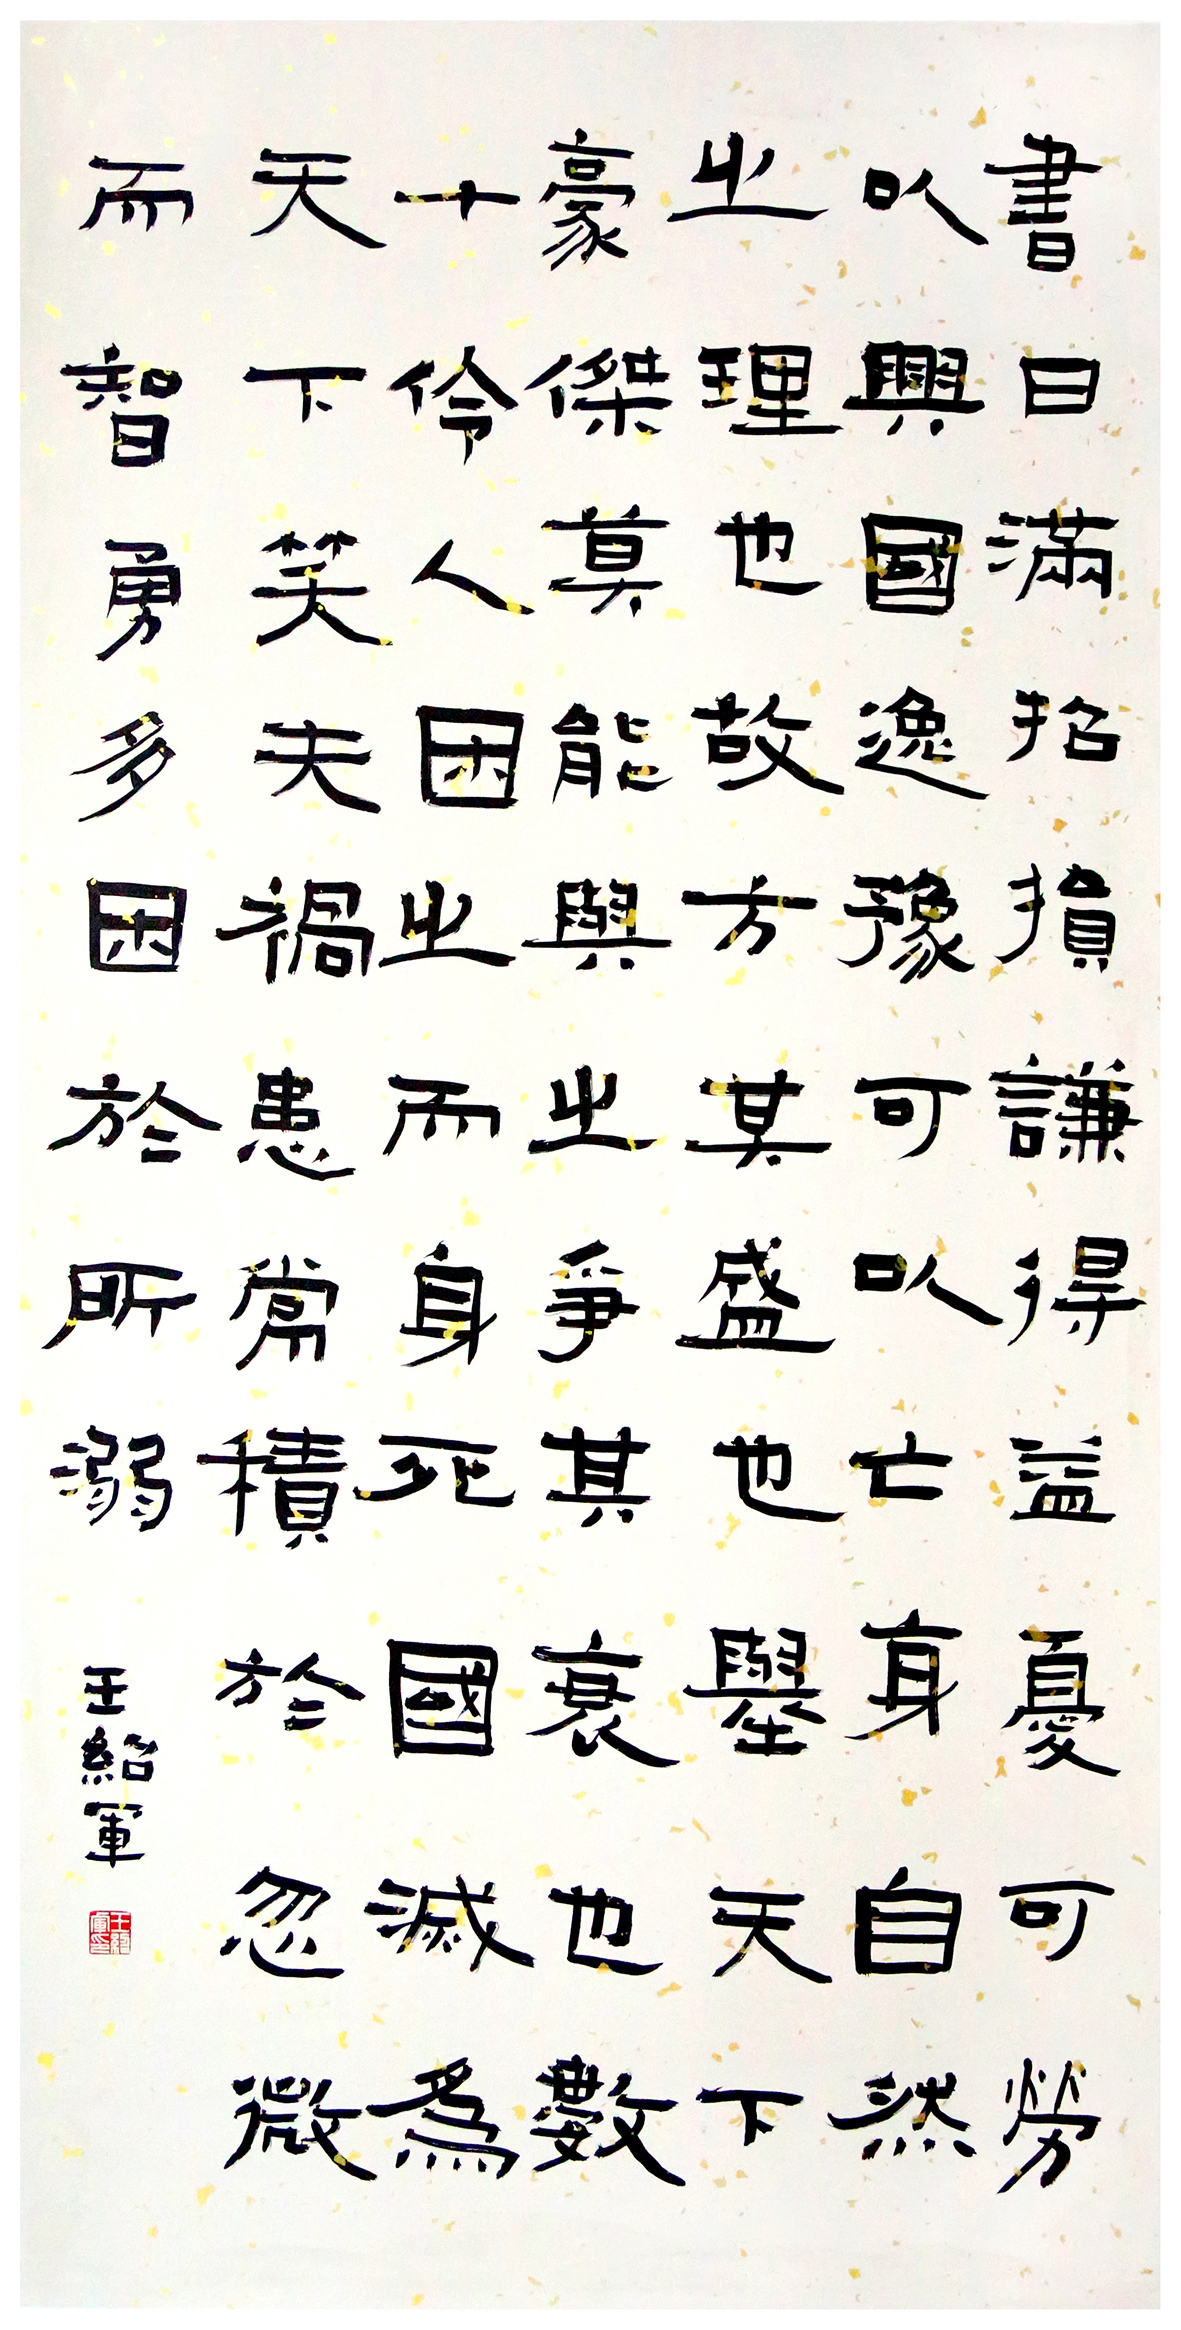 書曰滿招損謙得益憂可勞
以興國逸豫可以亡身自然
之理也故方其盛也舉天下
豪傑莫能與之爭其衰也數
十伶人困之而身死國滅為
天下笑夫禍患常積於忽微
而智勇多困於所溺
王紹軍
王紹軍印